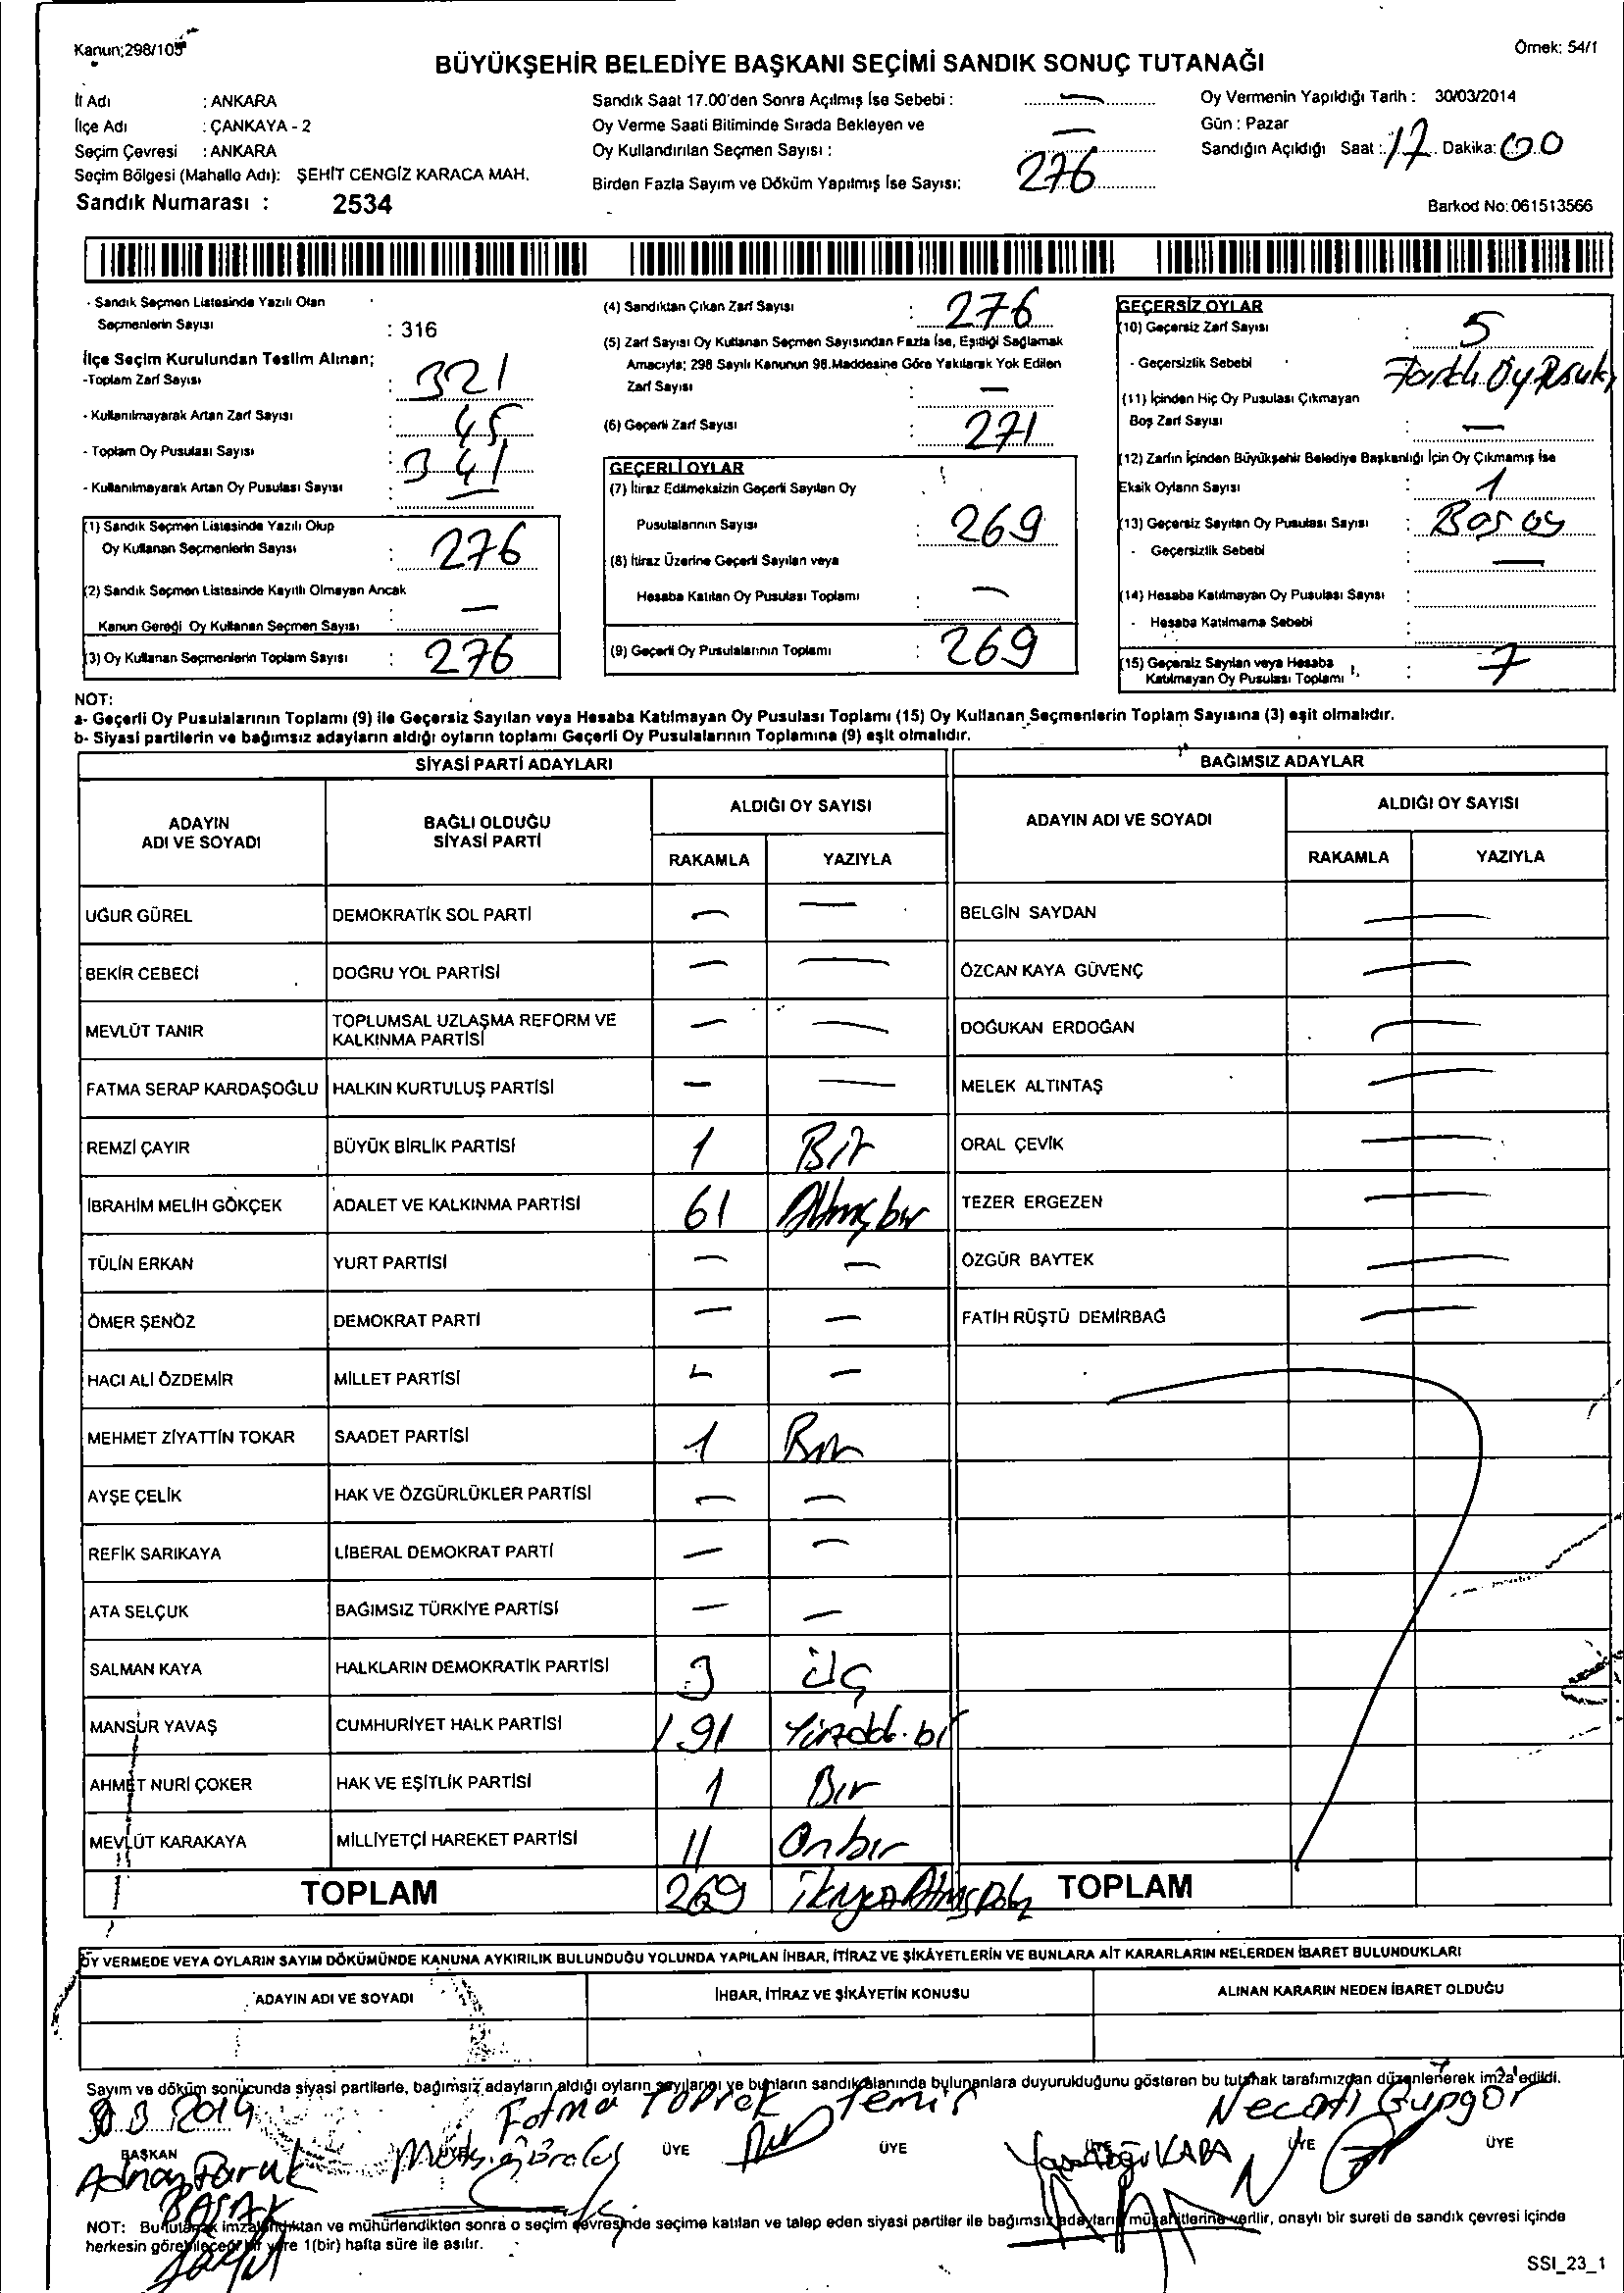 Kanun;298/105
Örnek: 54/1
BÜYÜKŞEHİR BELEDİYE BAŞKANI SEÇİMİ SANDIK SONUÇ TUTANAĞI
İl Adı : ANKARA
İlçe Adı : ÇANKAYA - 2
Seçim Çevresi : ANKARA
Seçim Bölgesi (Mahalle Adı): ŞEHİT CENGİZ KARACA MAH.
Sandık Numarası : 2534
Sandık Saat 17.00'den Sonra Açılmış İse Sebebi : —
Oy Verme Saati Bitiminde Sırada Bekleyen ve
Oy Kullandırılan Seçmen Sayısı : —
Birden Fazla Sayım ve Döküm Yapılmış İse Sayısı: 276
Oy Vermenin Yapıldığı Tarih : 30/03/2014
Gün : Pazar
Sandığın Açıldığı Saat : 17 Dakika: 00
Barkod No: 061513566
- Sandık Seçmen Listesinde Yazılı Olan
Seçmenlerin Sayısı : 316
İlçe Seçim Kurulundan Teslim Alınan;
-Toplam Zarf Sayısı : 321
- Kullanılmayarak Artan Zarf Sayısı : 45
- Toplam Oy Pusulası Sayısı : 341
- Kullanılmayarak Artan Oy Pusulası Sayısı : —
(1) Sandık Seçmen Listesinde Yazılı Olup
Oy Kullanan Seçmenlerin Sayısı : 276
(2) Sandık Seçmen Listesinde Kayıtlı Olmayan Ancak
Kanun Gereği Oy Kullanan Seçmen Sayısı : —
(3) Oy Kullanan Seçmenlerin Toplam Sayısı : 276
(4) Sandıktan Çıkan Zarf Sayısı : 276
(5) Zarf Sayısı Oy Kullanan Seçmen Sayısından Fazla İse, Eşitliği Sağlamak
Amacıyla; 298 Sayılı Kanunun 98.Maddesine Göre Yakılarak Yok Edilen
Zarf Sayısı : —
(6) Geçerli Zarf Sayısı : 271
GEÇERLİ OYLAR
(7) İtiraz Edilmeksizin Geçerli Sayılan Oy
Pusulalarının Sayısı : 269
(8) İtiraz Üzerine Geçerli Sayılan veya
Hesaba Katılan Oy Pusulası Toplamı : —
(9) Geçerli Oy Pusulalarının Toplamı : 269
GEÇERSİZ OYLAR
(10) Geçersiz Zarf Sayısı : 5
- Geçersizlik Sebebi : Farklı Oy Pusula
(11) İçinden Hiç Oy Pusulası Çıkmayan
Boş Zarf Sayısı : —
(12) Zarfın İçinden Büyükşehir Belediye Başkanlığı İçin Oy Çıkmamış İse
Eksik Oyların Sayısı : 1
(13) Geçersiz Sayılan Oy Pusulası Sayısı : Boş oy
- Geçersizlik Sebebi : —
(14) Hesaba Katılmayan Oy Pusulası Sayısı :
- Hesaba Katılmama Sebebi :
(15) Geçersiz Sayılan veya Hesaba
Katılmayan Oy Pusulası Toplamı : 7
NOT:
a- Geçerli Oy Pusulalarının Toplamı (9) ile Geçersiz Sayılan veya Hesaba Katılmayan Oy Pusulası Toplamı (15) Oy Kullanan Seçmenlerin Toplam Sayısına (3) eşit olmalıdır.
b- Siyasi partilerin ve bağımsız adayların aldığı oyların toplamı Geçerli Oy Pusulalarının Toplamına (9) eşit olmalıdır.
SİYASİ PARTİ ADAYLARI
BAĞIMSIZ ADAYLAR
ADAYIN ADI VE SOYADI
BAĞLI OLDUĞU SİYASİ PARTİ
ALDIĞI OY SAYISI
ADAYIN ADI VE SOYADI
ALDIĞI OY SAYISI
RAKAMLA YAZIYLA
RAKAMLA YAZIYLA
UĞUR GÜREL DEMOKRATİK SOL PARTİ — — BELGİN SAYDAN —
BEKİR CEBECİ DOĞRU YOL PARTİSİ — — ÖZCAN KAYA GÜVENÇ —
MEVLÜT TANIR TOPLUMSAL UZLAŞMA REFORM VE KALKINMA PARTİSİ — — DOĞUKAN ERDOĞAN —
FATMA SERAP KARDAŞOĞLU HALKIN KURTULUŞ PARTİSİ — — MELEK ALTINTAŞ —
REMZİ ÇAYIR BÜYÜK BİRLİK PARTİSİ 1 Bir ORAL ÇEVİK —
İBRAHİM MELİH GÖKÇEK ADALET VE KALKINMA PARTİSİ 61 Altmışbir TEZER ERGEZEN —
TÜLİN ERKAN YURT PARTİSİ — — ÖZGÜR BAYTEK —
ÖMER ŞENÖZ DEMOKRAT PARTİ — — FATİH RÜŞTÜ DEMİRBAĞ —
HACI ALİ ÖZDEMİR MİLLET PARTİSİ — —
MEHMET ZİYATTİN TOKAR SAADET PARTİSİ 1 Bir
AYŞE ÇELİK HAK VE ÖZGÜRLÜKLER PARTİSİ — —
REFİK SARIKAYA LİBERAL DEMOKRAT PARTİ — —
ATA SELÇUK BAĞIMSIZ TÜRKİYE PARTİSİ — —
SALMAN KAYA HALKLARIN DEMOKRATİK PARTİSİ 3 üç
MANSUR YAVAŞ CUMHURİYET HALK PARTİSİ 191
AHMET NURİ ÇOKER HAK VE EŞİTLİK PARTİSİ 1 Bir
MEVLÜT KARAKAYA MİLLİYETÇİ HAREKET PARTİSİ 11 Onbir
TOPLAM 269 TOPLAM
OY VERMEDE VEYA OYLARIN SAYIM DÖKÜMÜNDE KANUNA AYKIRILIK BULUNDUĞU YOLUNDA YAPILAN İHBAR, İTİRAZ VE ŞİKÂYETLERİN VE BUNLARA AİT KARARLARIN NELERDEN İBARET BULUNDUKLARI
ADAYIN ADI VE SOYADI İHBAR, İTİRAZ VE ŞİKÂYETİN KONUSU ALINAN KARARIN NEDEN İBARET OLDUĞU
Sayım ve döküm sonucunda siyasi partilerle, bağımsız adayların aldığı oyların sayılarını ve bunların sandık alanında bulunanlara duyurulduğunu gösteren bu tutanak tarafımızdan düzenlenerek imza edildi.
30 3 2014 Fatma Toprak Temir Necati Güngör
BAŞKAN ÜYE ÜYE ÜYE ÜYE ÜYE ÜYE
Adnan Faruk
BAŞAK
NOT: Bu tutanak imzalandıktan ve mühürlendikten sonra o seçim çevresinde seçime katılan ve talep eden siyasi partiler ile bağımsız adayların müşahitlerine verilir, onaylı bir sureti de sandık çevresi içinde
herkesin görebileceği bir yere 1(bir) hafta süre ile asılır.
SSI_23_1